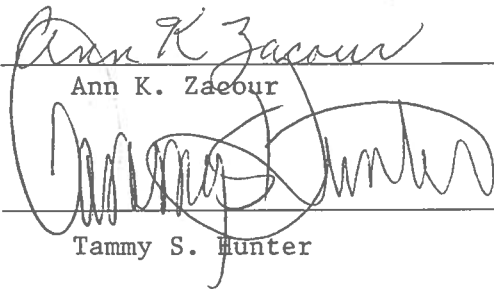 Ann K Zacour
Ann K. Zacour
Tammy S Hunter
Tammy S. Hunter